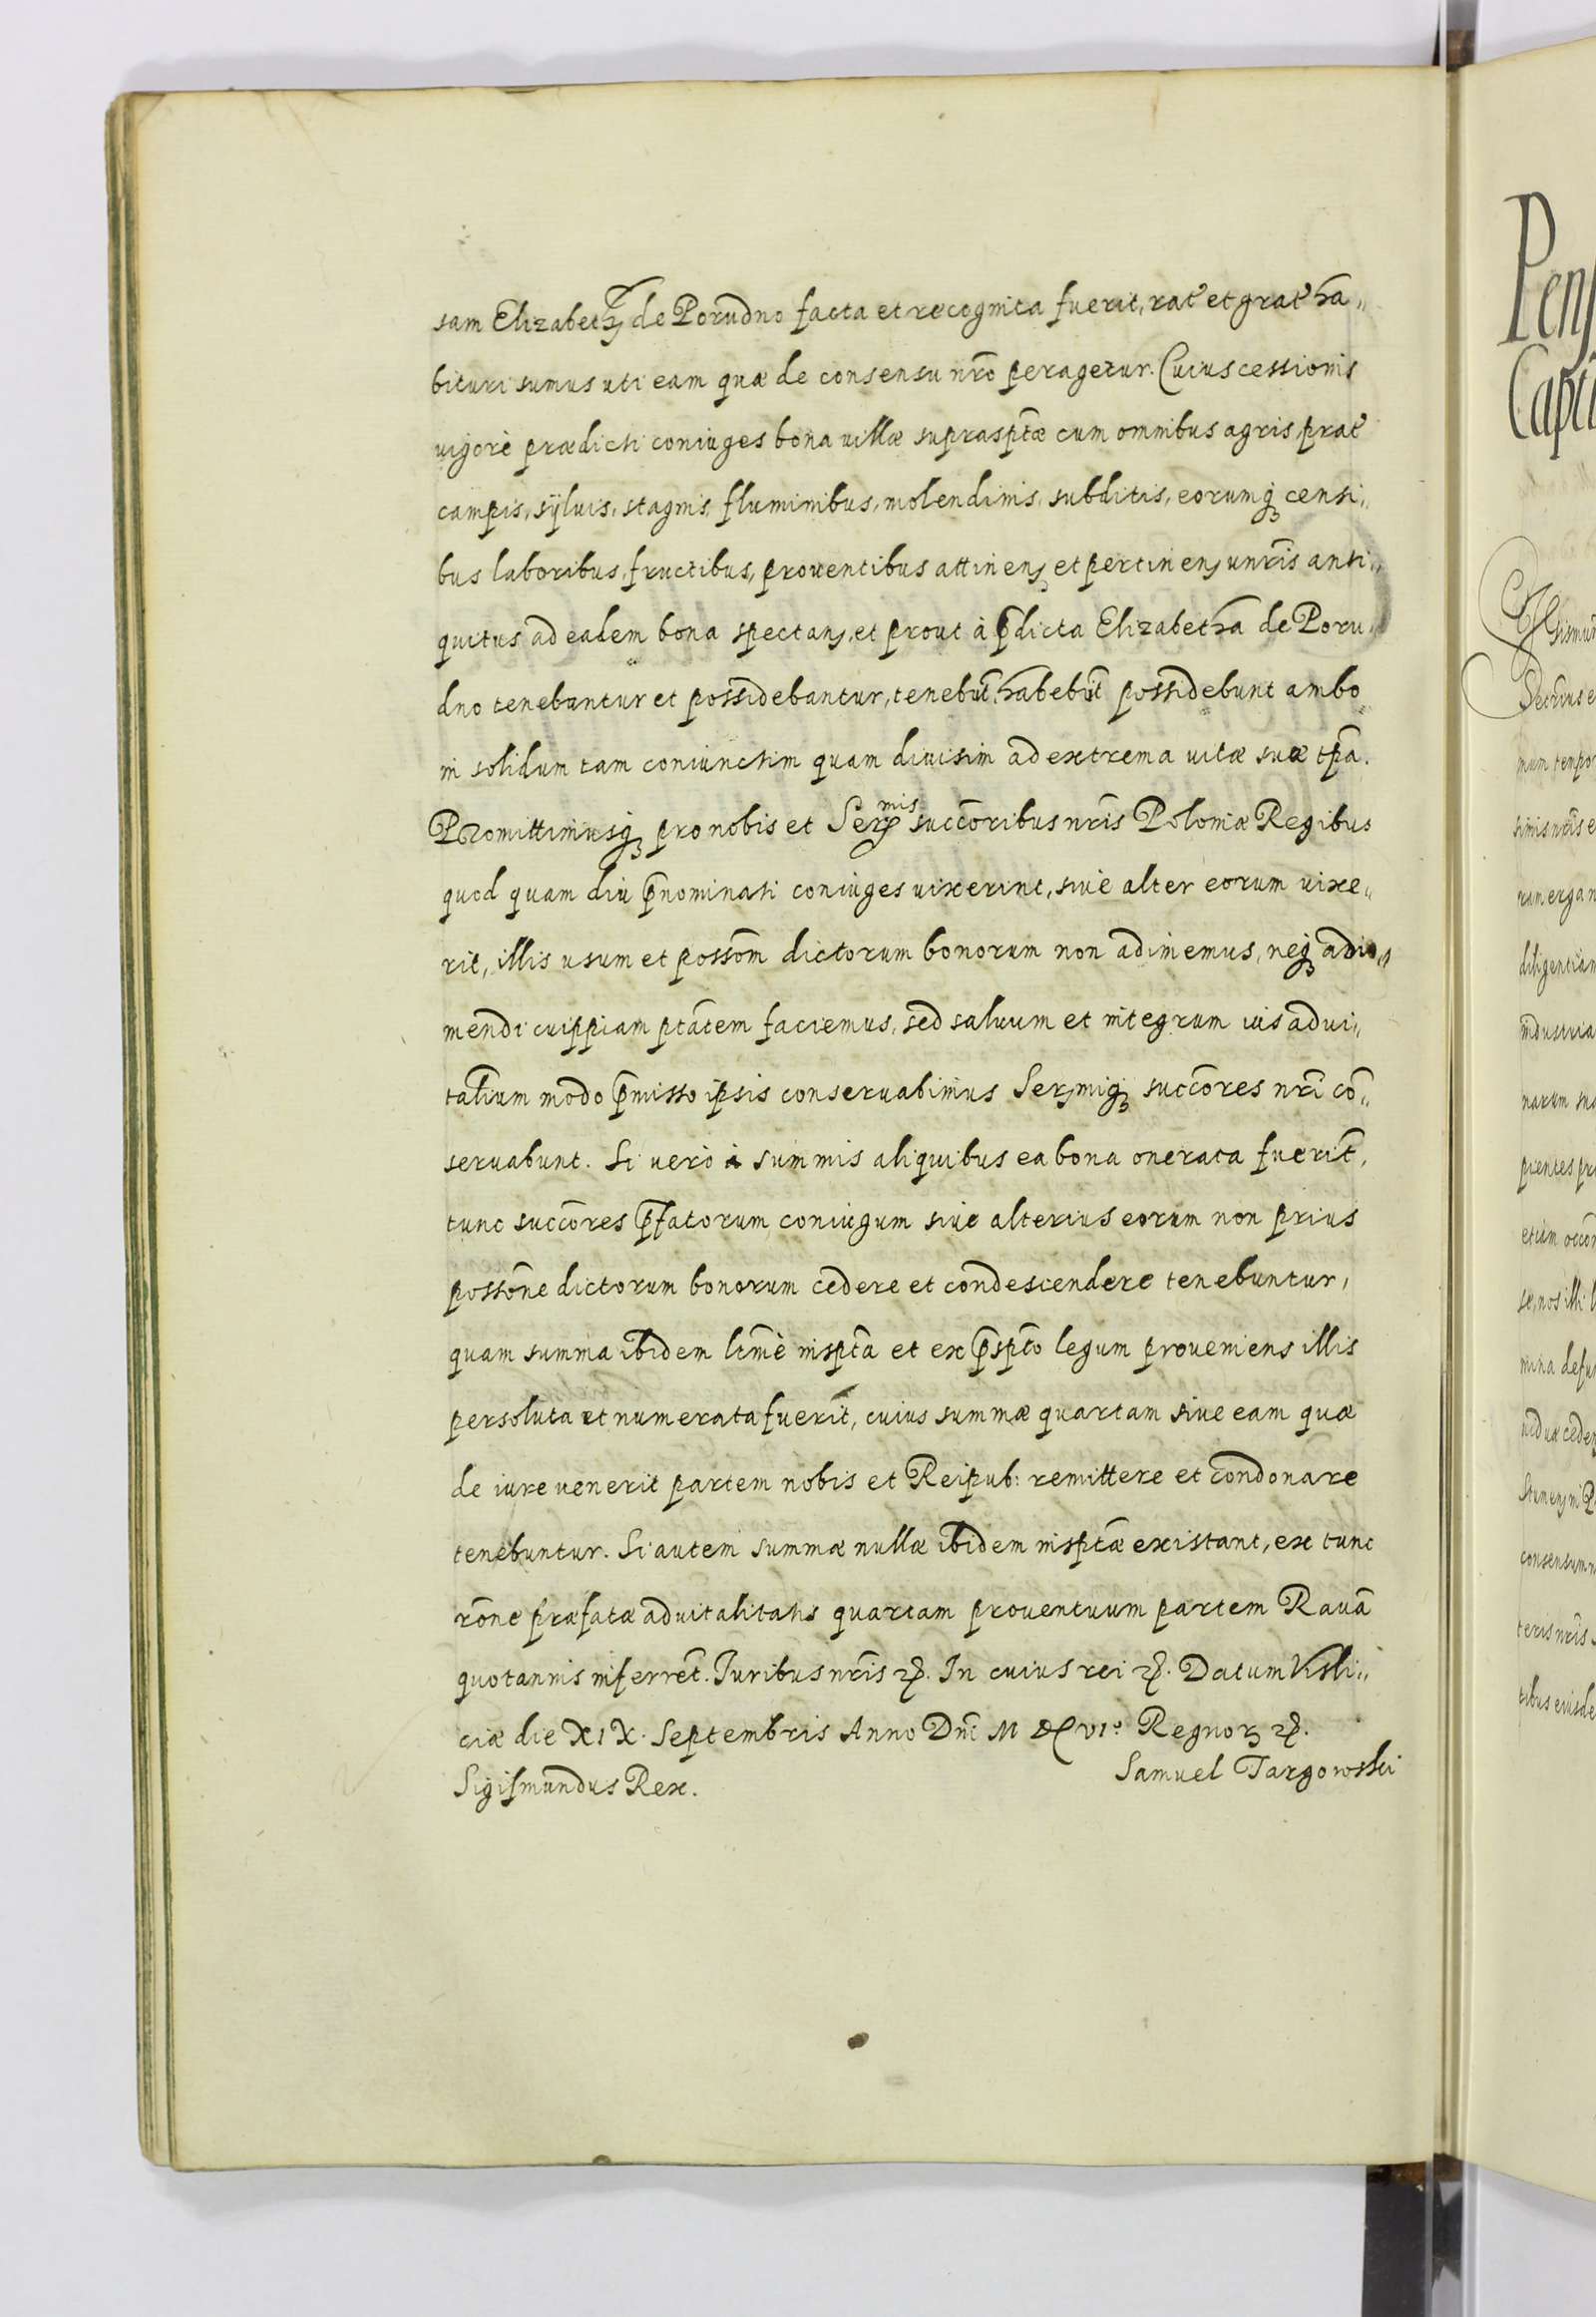 sam Elizabethã de Porudno facta et recognita fuerit, rat̃ et grat̃ ha„
bituri sumus uti eam quæ de consensu nr̃o peragetur. Cuius cessionis
vigore prædicti coniuges bona uillæ suprasp̃tæ cum omnibus agris, prat̃
campis, syluis, stagnis, fluminibus, molendinis, subditis, eorumq3 censi„
bus laboribus, fructibus, prouentibus attinen3 et pertinen3 unr̃is anti„
quitus ad eadem bona spectan3, et prout à p̃dicta Elizabetha de Poru„
dno tenebantur et possidebantur, tenebũt, habebũt possidebunt ambo
in solidum tam coniunctim quam diuisim ad extrema uitæ suæ tp̃a.
Promittimusq3 pro nobis et Serꝫmis succoribus nr̃is Poloniæ Regibus
quod quam diu p̃nominati coniuges uixerint, siue alter eorum uixe„
rit, illis usum et possom̃ dictorum bonorum non adimemus, neq3 adi„
mendi cuippiam ptãtem faciemus, sed saluum et integrum ius adui„
talium modo p̃misso ipsis conseruabimus Ser3miq3 succores nr̃i cõ„
seruabunt. Si uerò à summis aliquibus ea bona onerata fuerit̃,
tunc succores p̃fatorum coniugum siue alterius eorum non prius
possone dictorum bonorum cedere et condescendere tenebuntur,
quam summa ibidem ltm̃è insp̃ta et ex p̃sp̃to legum proueniens illis
persoluta et numerata fuerit̃, cuius summæ quartam siue eam quæ
de iure uenerit partem nobis et Reipub: remittere et condonare
tenebuntur. Si autem summæ nullæ ibidem insp̃tæ existant, ex tunc
rõne præfatæ aduitalitatis quartam prouentuum partem Rauã
quotannis inferret̃. Iuribus nr̃is ꝛꝭ. In cuius rei ꝛꝭ. Datum Visli„
ciæ die XIX. Septembris Anno Dñi M DC VI° Regnoꝝ ꝛꝭ.
Sigismundus Rex.
Samuel Targowski
Pens
Capti